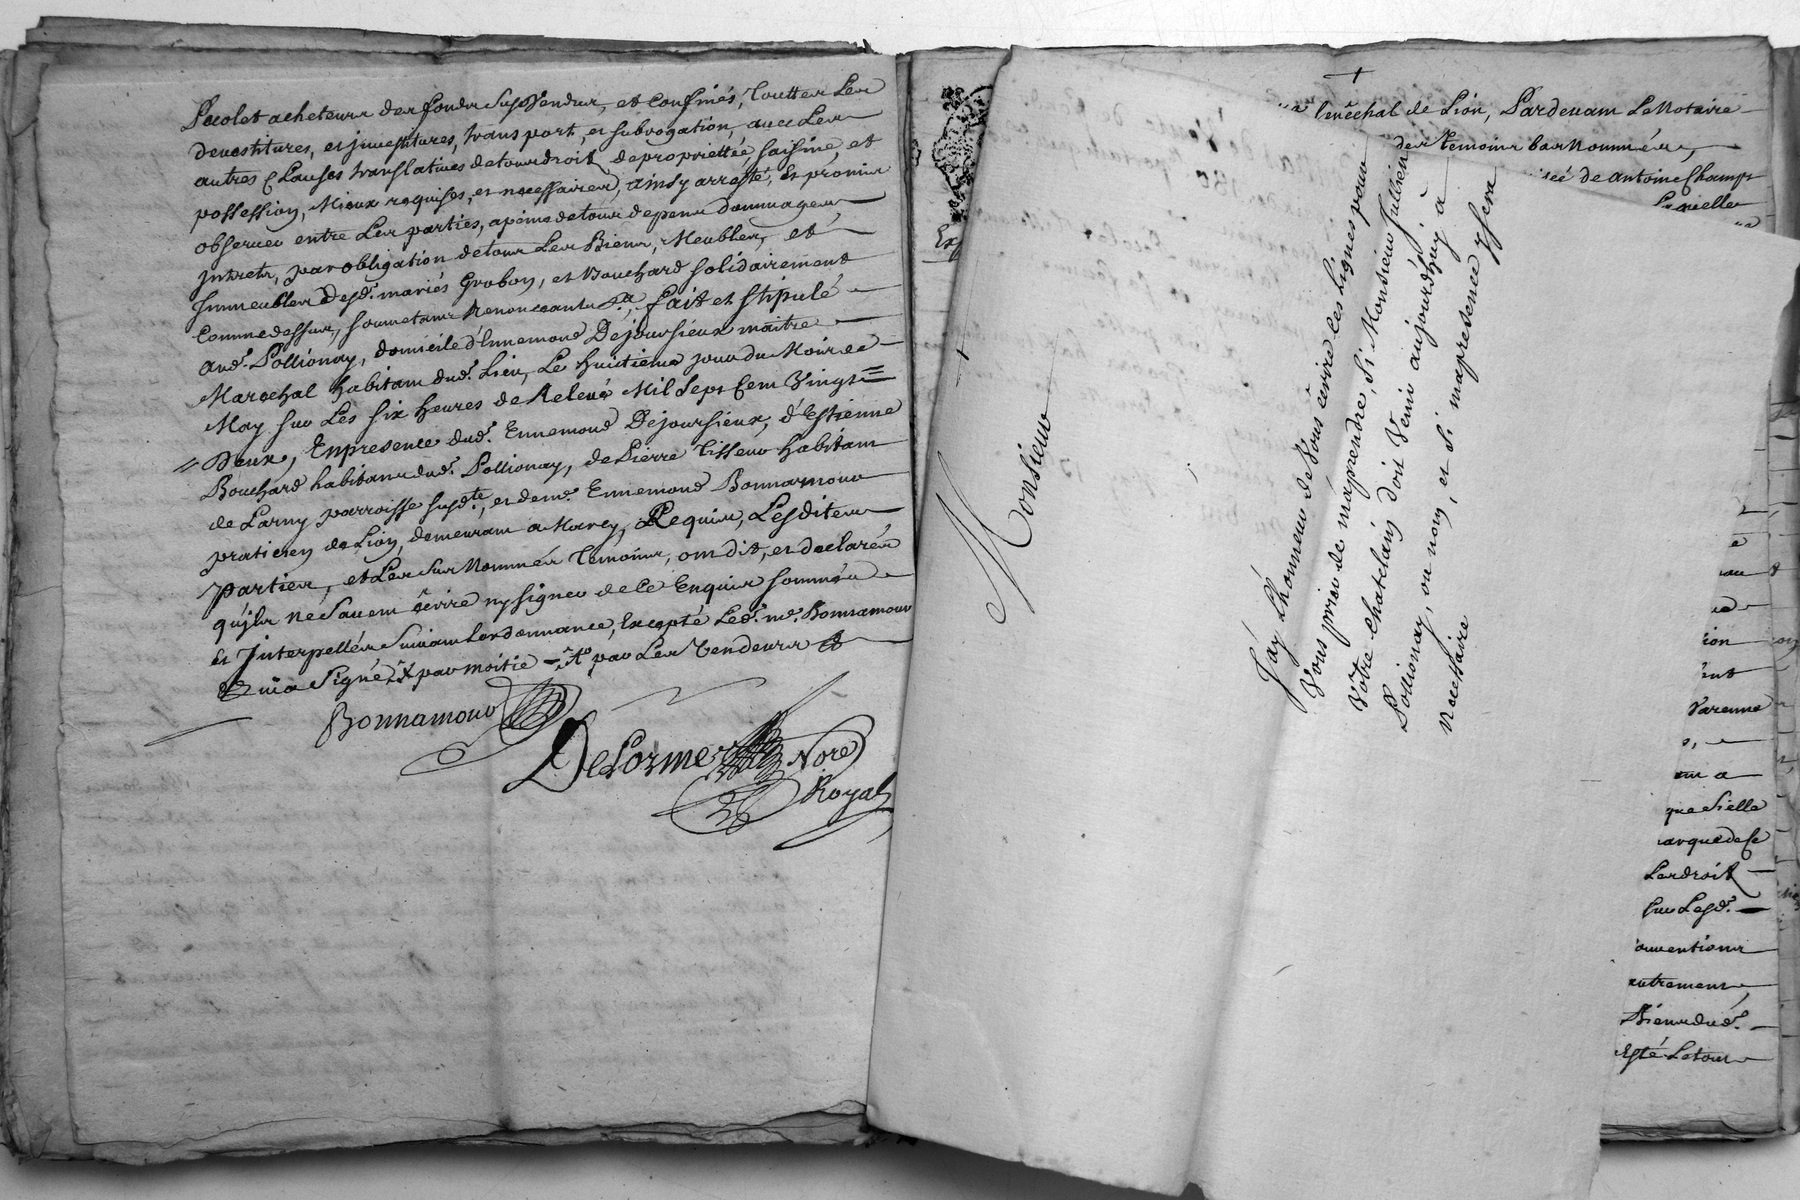 Pacolet acheteur des fonds susvendus, et confinés, touttes Les
devestitures, et jnvestitures, transport, et subrogation, avec Les
autres Clauses translatives de tous droits de propriettée, saisine, et
possession, Mieux requises, et necessaires, ainsy arresté, et promis
observer entre Les parties, apeine de tous depens dommages
jntrets, par obligation de tous Les Biens, Meubles, et
jmmeubles desd. mariés Grobon, et Bouchard solidairement
Comme dessus, soumetans Renonceants &a, fait et stipulé
aud. Pollionay, domicile d'Ennemond Dejoursieux maitre
Marechal habitant dud. Lieu, Le huitieme jour du Mois de
May sur Les six heures de Relevé Mil Sept Cent Vingt=
=Deux, En presence dud. Ennemond Dejoursieux, d'Estienne
Bouchard habitant dud. Pollionay, de Pierre Tisseur habitant
de Larny parroisse susdte, et de me. Ennemond Bonnamour
praticien de Lion, demeurant a Marcy, Requis, Lesdites
parties, et Les sus Nommés temoins, ont dit, et declarés
qu'jls ne savent écrire ny signer de ce Enquis sommés
et Jnterpellés suivant Lordonnance, Excepté Led. me. Bonnamour
qui a signé par moitie par Les Vendeurs
Bonnamour
DeLorme Nore
Royal
Monsieur
J'ay L'honneur de Vous écrire ces Lignes pour
Vous prier de m'aprendre, si Monsieur Jullien
Vôtre chatelain doit Venir aujourdhuy à
Pollionay, ou non, et si ma presence y sera
necessaire
+
senêchal de Lion, Pardevant Le Notaire
des temoins bas Nommés,
de antoine Champt
Laquelle
Varenne
que sielle
Les droits
sur Lesd.
Biens dud.